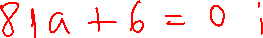 81a + 6 = 0 i